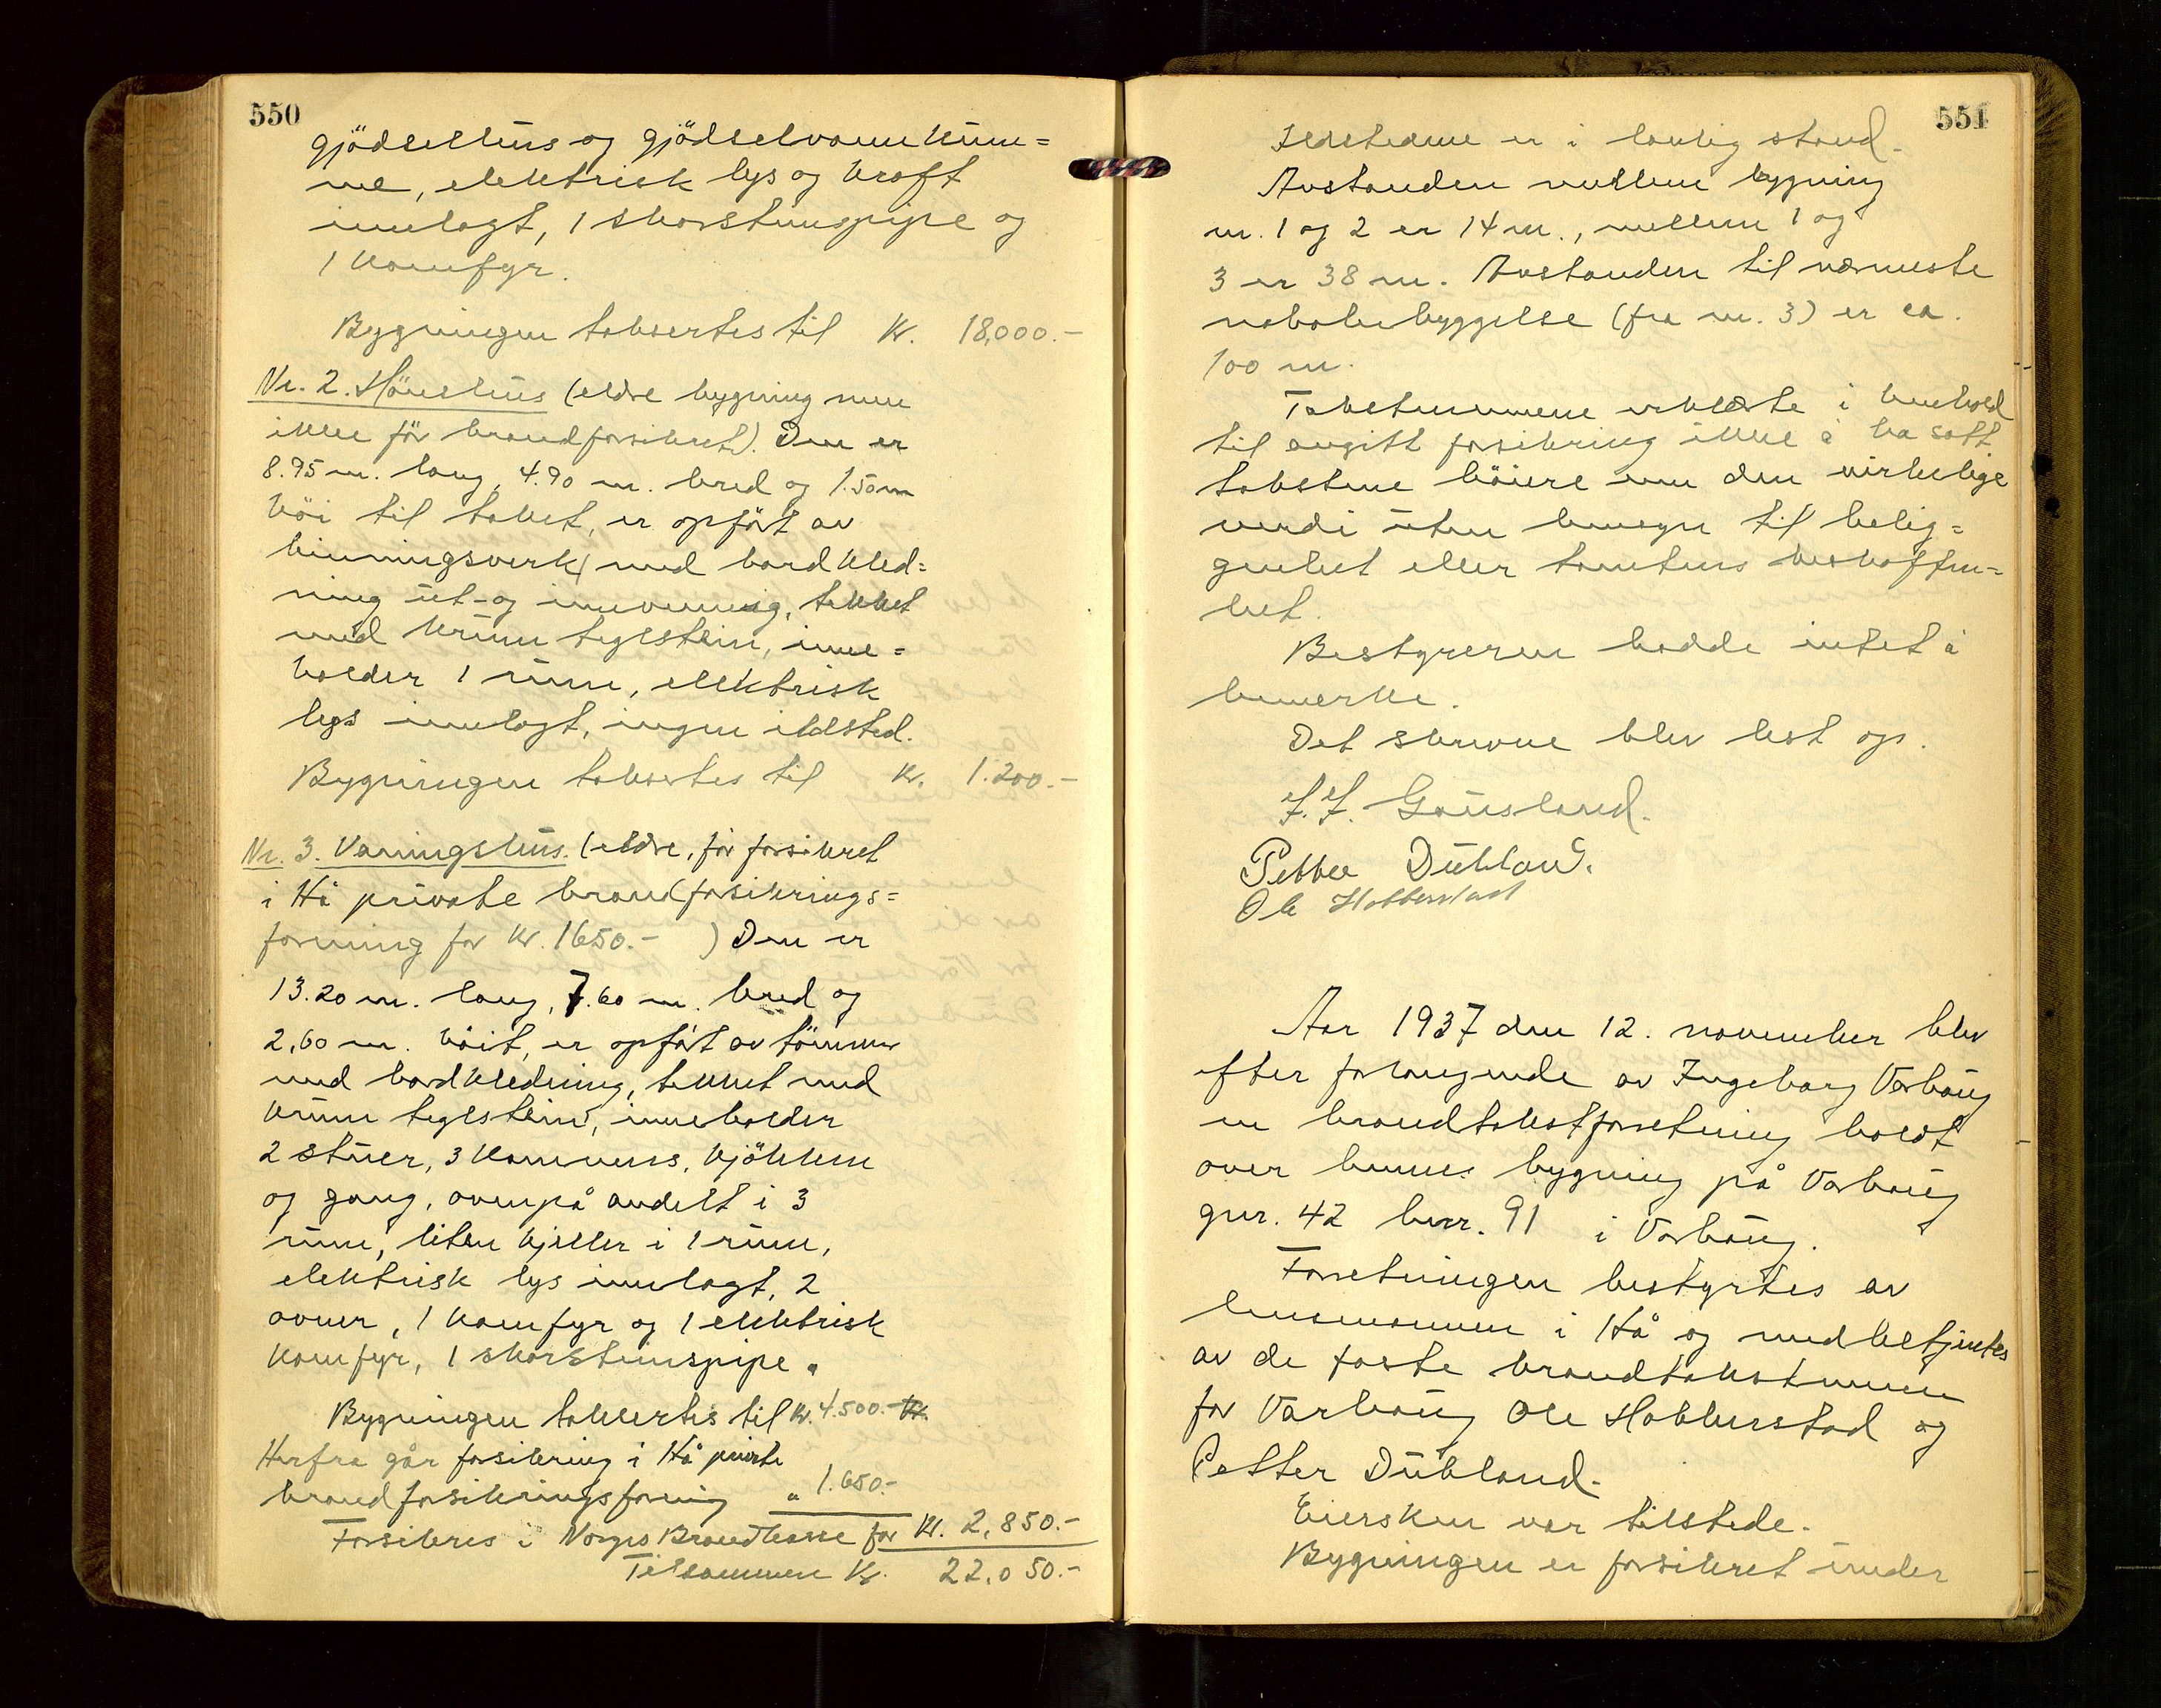 550
gjödselhus og gjödselvannkum=
me, elektrisk lys og kraft
innlagt, 1 skorstenspipe og
1 komfyr.
Bygningen taksertes til Kr. 18,000.-
Nr. 2. Hönsehus (eldre bygning men
ikke för brandforsikret). Den er
8.95 m. lang, 4.90 m. bred og 1.50 m
höi til taket, er opfört av
binningsverk med bordkled=
ning ut- og innvendig, tekket
med krum teglstein, inne=
holder 1 rum, elektrisk
lys innlagt, ingen ildsted.
Bygningen taksertes til Kr. 1.200.-
Nr. 3. Vaningshus. (eldre, för forsikret
i Hå private brandforsikrings=
forening for Kr. 1650.- ) Den er
13.20 m. lang, 7.60 m. bred og
2,60 m. höit, er opfört av tömmer
med bordkledning, tekket med
krum teglstein, inneholder
2 stuer, 3 kammers, kjökken
og gang, ovenpå avdelt i 3
rum, liten kjeller i 1 rum,
elektrisk lys innlagt, 2
ovner, 1 komfyr og 1 elektrisk
komfyr, 1 skorsteinspipe.
Bygningen taksertes til Kr. 4.500.- Kr.
Herfra går forsikring i Hå private
brandforsikringsforening " 1.650.-
Forsikres i Norges Brandkasse for Kr. 2,850.-
Tilsammen Kr. 22.050.-
551
Ildstedene er i lovlig stand.
Avstanden mellem bygning
nr. 1 og 2 er 14 m., mellem 1 og
3 er 38 m. Avstanden til nærmeste
nabobebyggelse (fra nr. 3) er ca.
100 m.
Takstmennene erklærte i henhold
til avgitt forsikring ikke å ha satt
takstene höiere enn den virkelige
verdi uten hensyn til belig=
genhet eller tomtens beskaffen=
het.
Bestyreren hadde intet å
bemerke.
Det skrevne blev lest op.
J. J. Gausland.
Petter Dubland.
Ole Hobberstad
Aar 1937 den 12. november blev
efter forlangende av Ingeborg Varhaug
en brandtakstforretning holdt
over hennes bygning på Varhaug
gnr. 42 bnr. 91 i Varhaug.
Forretningen bestyrtes av
lensmannen i Hå og medbetjentes
av de faste brandtakstmenn
for Varhaug Ole Hobberstad og
Petter Dubland.
Eiersken var tilstede.
Bygningen er forsikret under